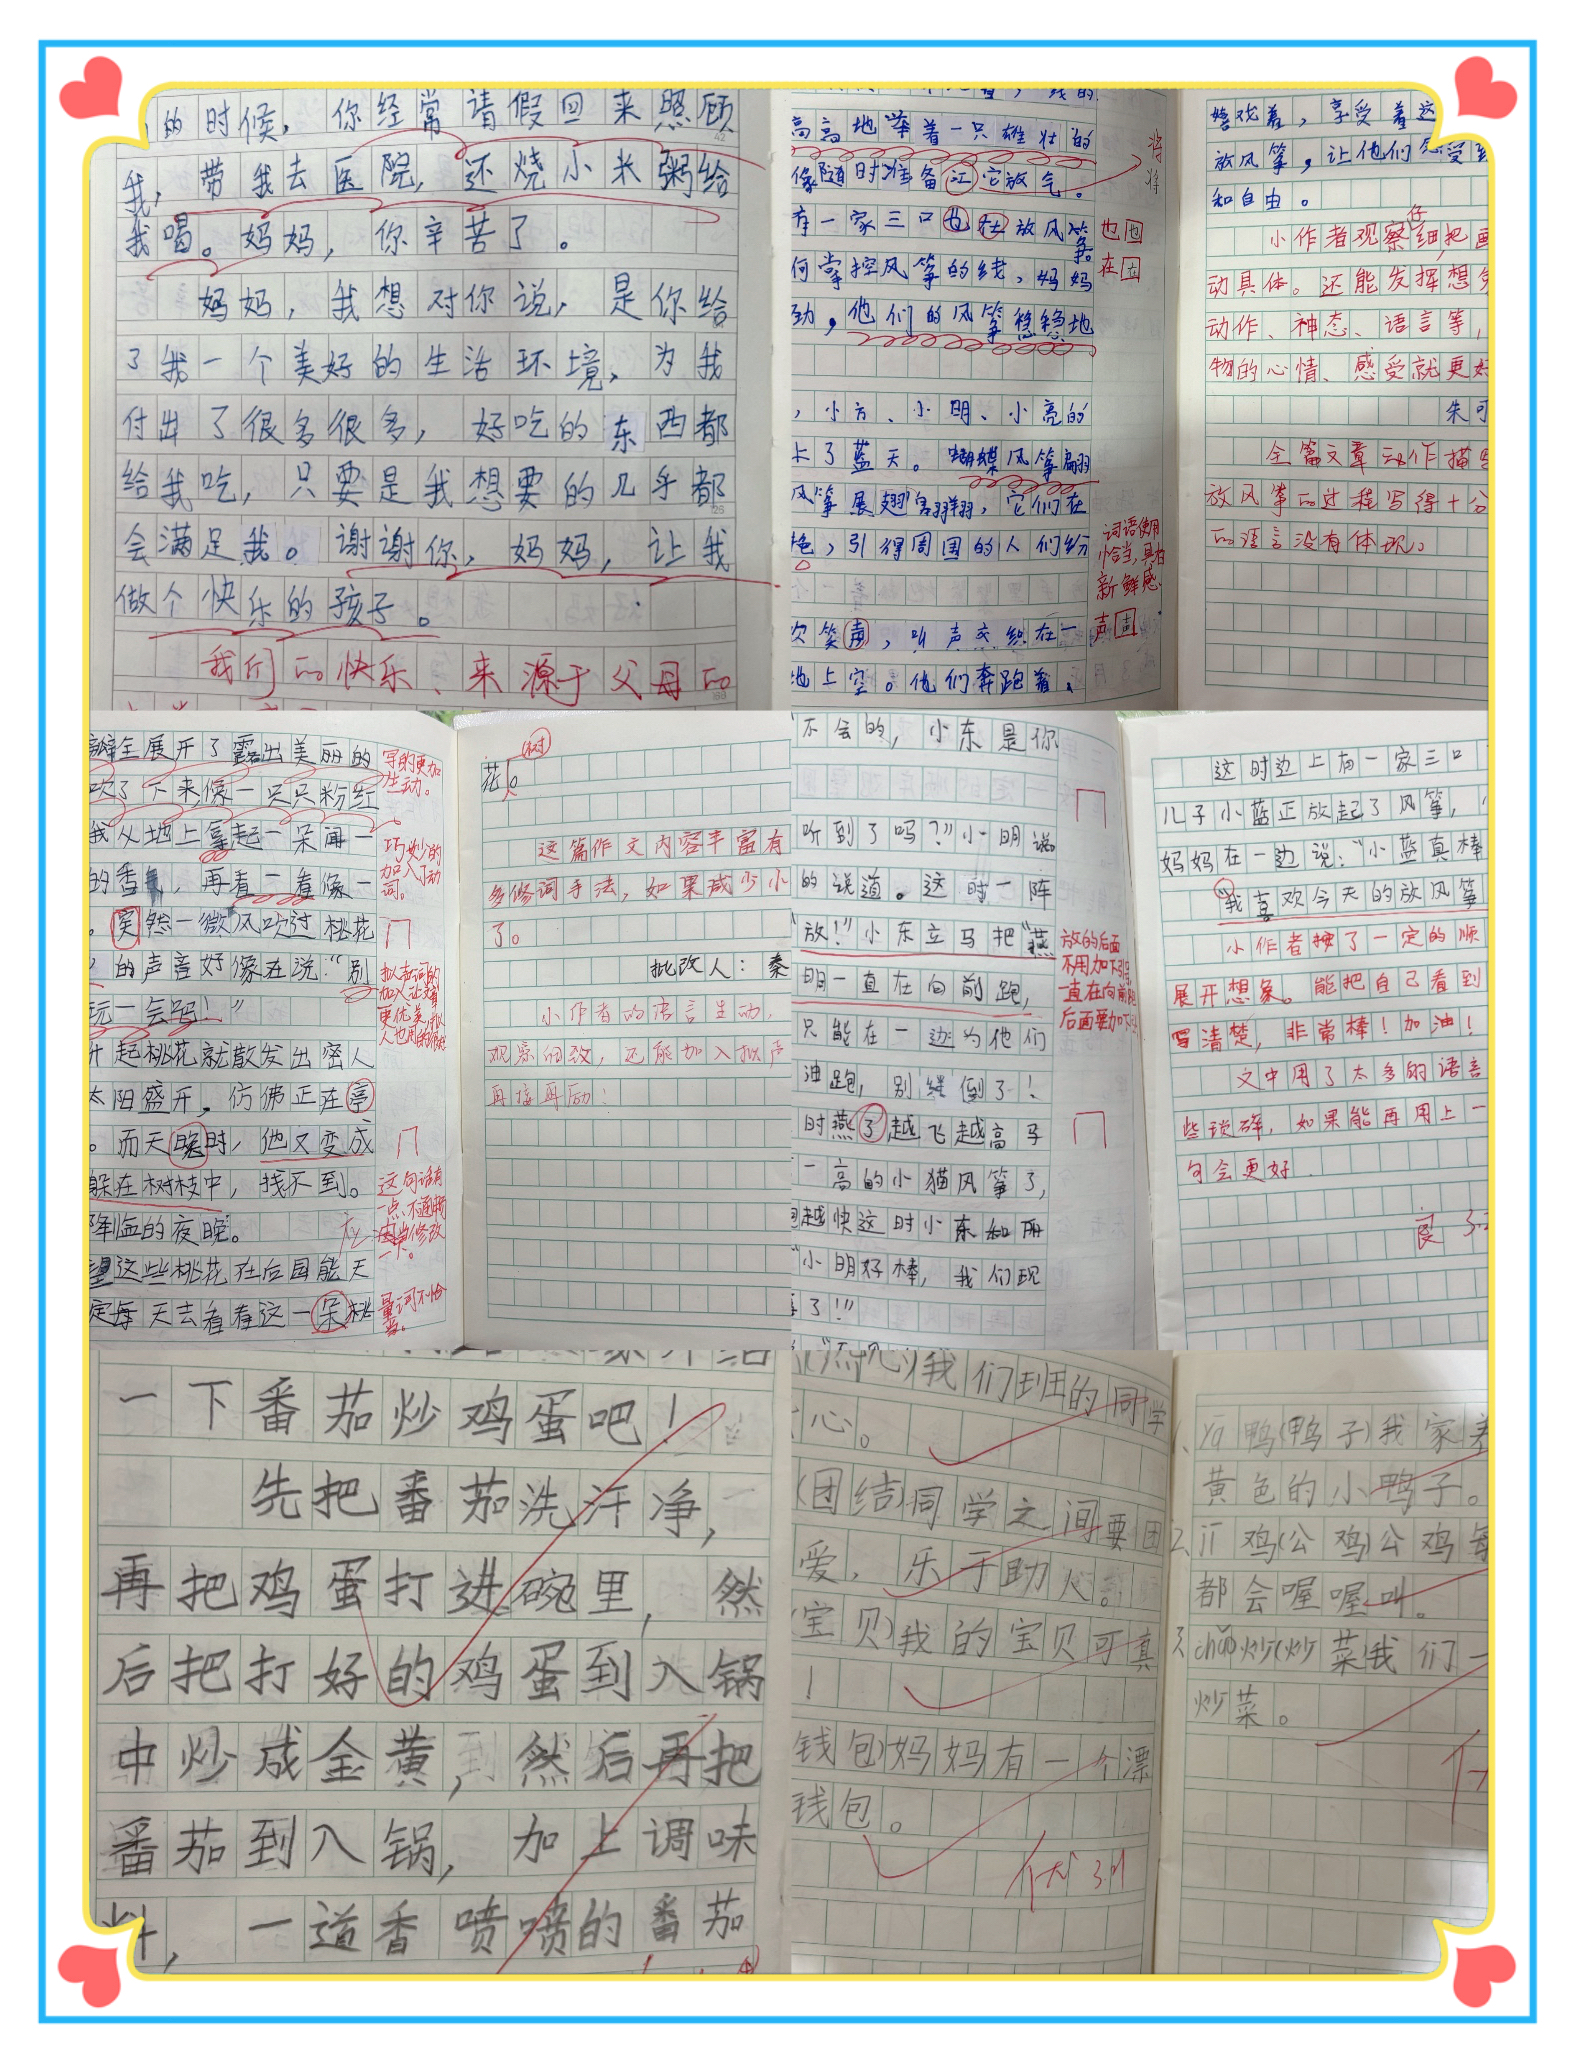 的时候，你经常请假回来照顾
我，带我去医院，还烧小米粥给
我喝。妈妈，你辛苦了。
妈妈，我想对你说，是你给
了我一个美好的生活环境，为我
付出了很多很多，好吃的东西都
给我吃，只要是我想要的几乎都
会满足我。谢谢你，妈妈，让我
做个快乐的孩子。
我们的快乐、来源于父母的
高高地举着一只雄壮的
像随时准备让它放气。
有一家三口也在放风筝。
何掌控风筝的线，妈妈
劲，他们的风筝稳稳地
，小方、小明、小亮的
上了蓝天。蝴蝶风筝翩
风筝展翅翱翔，它们在
艳，引得周围的人们纷
欢笑声，听声交织在一
地上空。他们奔跑着、
将
将
也也
在在
词语使用
恰当，具有
新鲜感
声声
嬉戏着，享受着这
放风筝，让他们感受到
和自由。
小作者观察仔细，把画
动具体。还能发挥想象
动作、神态、语言等，
物的心情、感受就更好
朱可
全篇文章动作描写
放风筝的过程写得十分
的语言没有体现。
瓣全展开了露出美丽的
吹了下来像一只只粉红
我从地上拿起一朵闻一
的香，再看一看像一
。突然一微风吹过桃花
的声音好像在说：“别
玩一会吗！”
升起桃花就散发出密人
太阳盛开，仿佛正在亭
。而天晚时，他又变成
躲在树枝中，找不到。
降临的夜晚。
望这些桃花在后园能天
定每天去看看这一朵桃
写的更加
生动。
巧妙的
加入了动
词。
拟声词的
加入让文章
更优美，拟
人也用的
这句话有
一点不通顺
应当修改
一下。
量词不恰
当。
花。
(树)
这篇作文内容丰富有
多修词手法，如果减少小
了。
批改人：秦
小作者的语言生动，
观察细致，还能加入拟声
再接再励！
不会的，小东是你
听到了吗？”小明说。
的说道。这时一阵
放！”小东立马把“燕
明一直在向前跑，
只能在一边为他们
油跑，别继倒了！
时燕了越飞越高马
一高的小猫风筝了，
跑越快这时小东和丽
“小明好棒，我们现
了！！”
放的后面
不用加下引号
一直在向前跑
后面要加
这时边上有一家三口
儿子小蓝正放起了风筝，
妈妈在一边说：“小蓝真棒
“我喜欢今天的放风筝
小作者按了一定的顺
展开想象。能把自己看到
写清楚，非常棒！加油！
文中用了太多的语言
些琐碎，如果能再用上一
句会更好
良 3.
一下番茄炒鸡蛋吧！
先把番茄洗汗净，
再把鸡蛋打进碗里，然
后把打好的鸡蛋到入锅
中炒成金黄，然后再把
番茄到入锅，加上调味
料，一道香喷喷的番茄
我们班的同学
心。
(团结)同学之间要团
爱，乐于助人。
(宝贝)我的宝贝可真
！
钱包)妈妈有一个漂
钱包。
优 3.11
1、yā鸭(鸭子)我家养
黄色的小鸭子。
2、jī鸡(公鸡)公鸡每
都会喔喔叫。
3、chǎo炒(炒菜)我们一
炒菜。
优